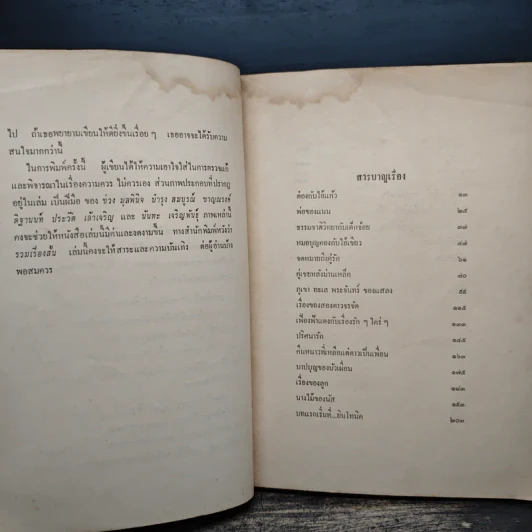 ไป ถ้าเธอพยายามเขียนให้ดียิ่งขึ้นเรื่อย ๆ เธออาจจะได้รับความ
สนใจมากกว่านี้
ในการพิมพ์ครั้งนี้ ผู้เขียนได้ให้ความเอาใจใส่ในการตรวจแก้
และพิจารณาในเรื่องความควร ไม่ควรเอง ส่วนภาพประกอบที่ปรากฏ
อยู่ในเล่ม เป็นฝีมือ ของ ช่วง มูลพินิจ บำรุง สมบูรณ์ ชาญณรงค์
ดิฐานนท์ ประวัติ เล้าเจริญ และ นันทะ เจริญพันธุ์ ภาพเหล่านี้
คงจะช่วยให้หนังสือเล่มนี้มีค่าและงดงามขึ้น ทางสำนักพิมพ์หวังว่า
รวมเรื่องสั้น เล่มนี้คงจะให้สาระและความบันเทิง ต่อผู้อ่านบ้าง
พอสมควร
สารบาญเรื่อง
ต้องกับไอ้แก้ว ๑๓
พ่อของแนน ๒๕
ธรรมชาติวิทยากับเด็กจ้อย ๓๗
หมอบุญคองกับไอ้เขียว ๔๗
จดหมายถึงคู่รัก ๖๑
คู่เขยหลังม่านเหล็ก ๗๐
ภูเขา ทะเล พระจันทร์ ของแสลง
เรื่องของสองดาวจรจัด ๑๑๕
เฟื่องฟ้าแดงกับเรื่องรัก ๆ ใคร่ ๆ ๑๓๓
ปริศนารัก ๑๔๕
คืนหนาวที่เหลือแต่ดาวเป็นเพื่อน ๑๖๓
บาปบุญของบัวเผื่อน ๑๗๕
เรื่องของลูก ๑๘๓
นางไม้ของนัส
บทแรกเริ่มที่...อินโทนิค ๒๐๓